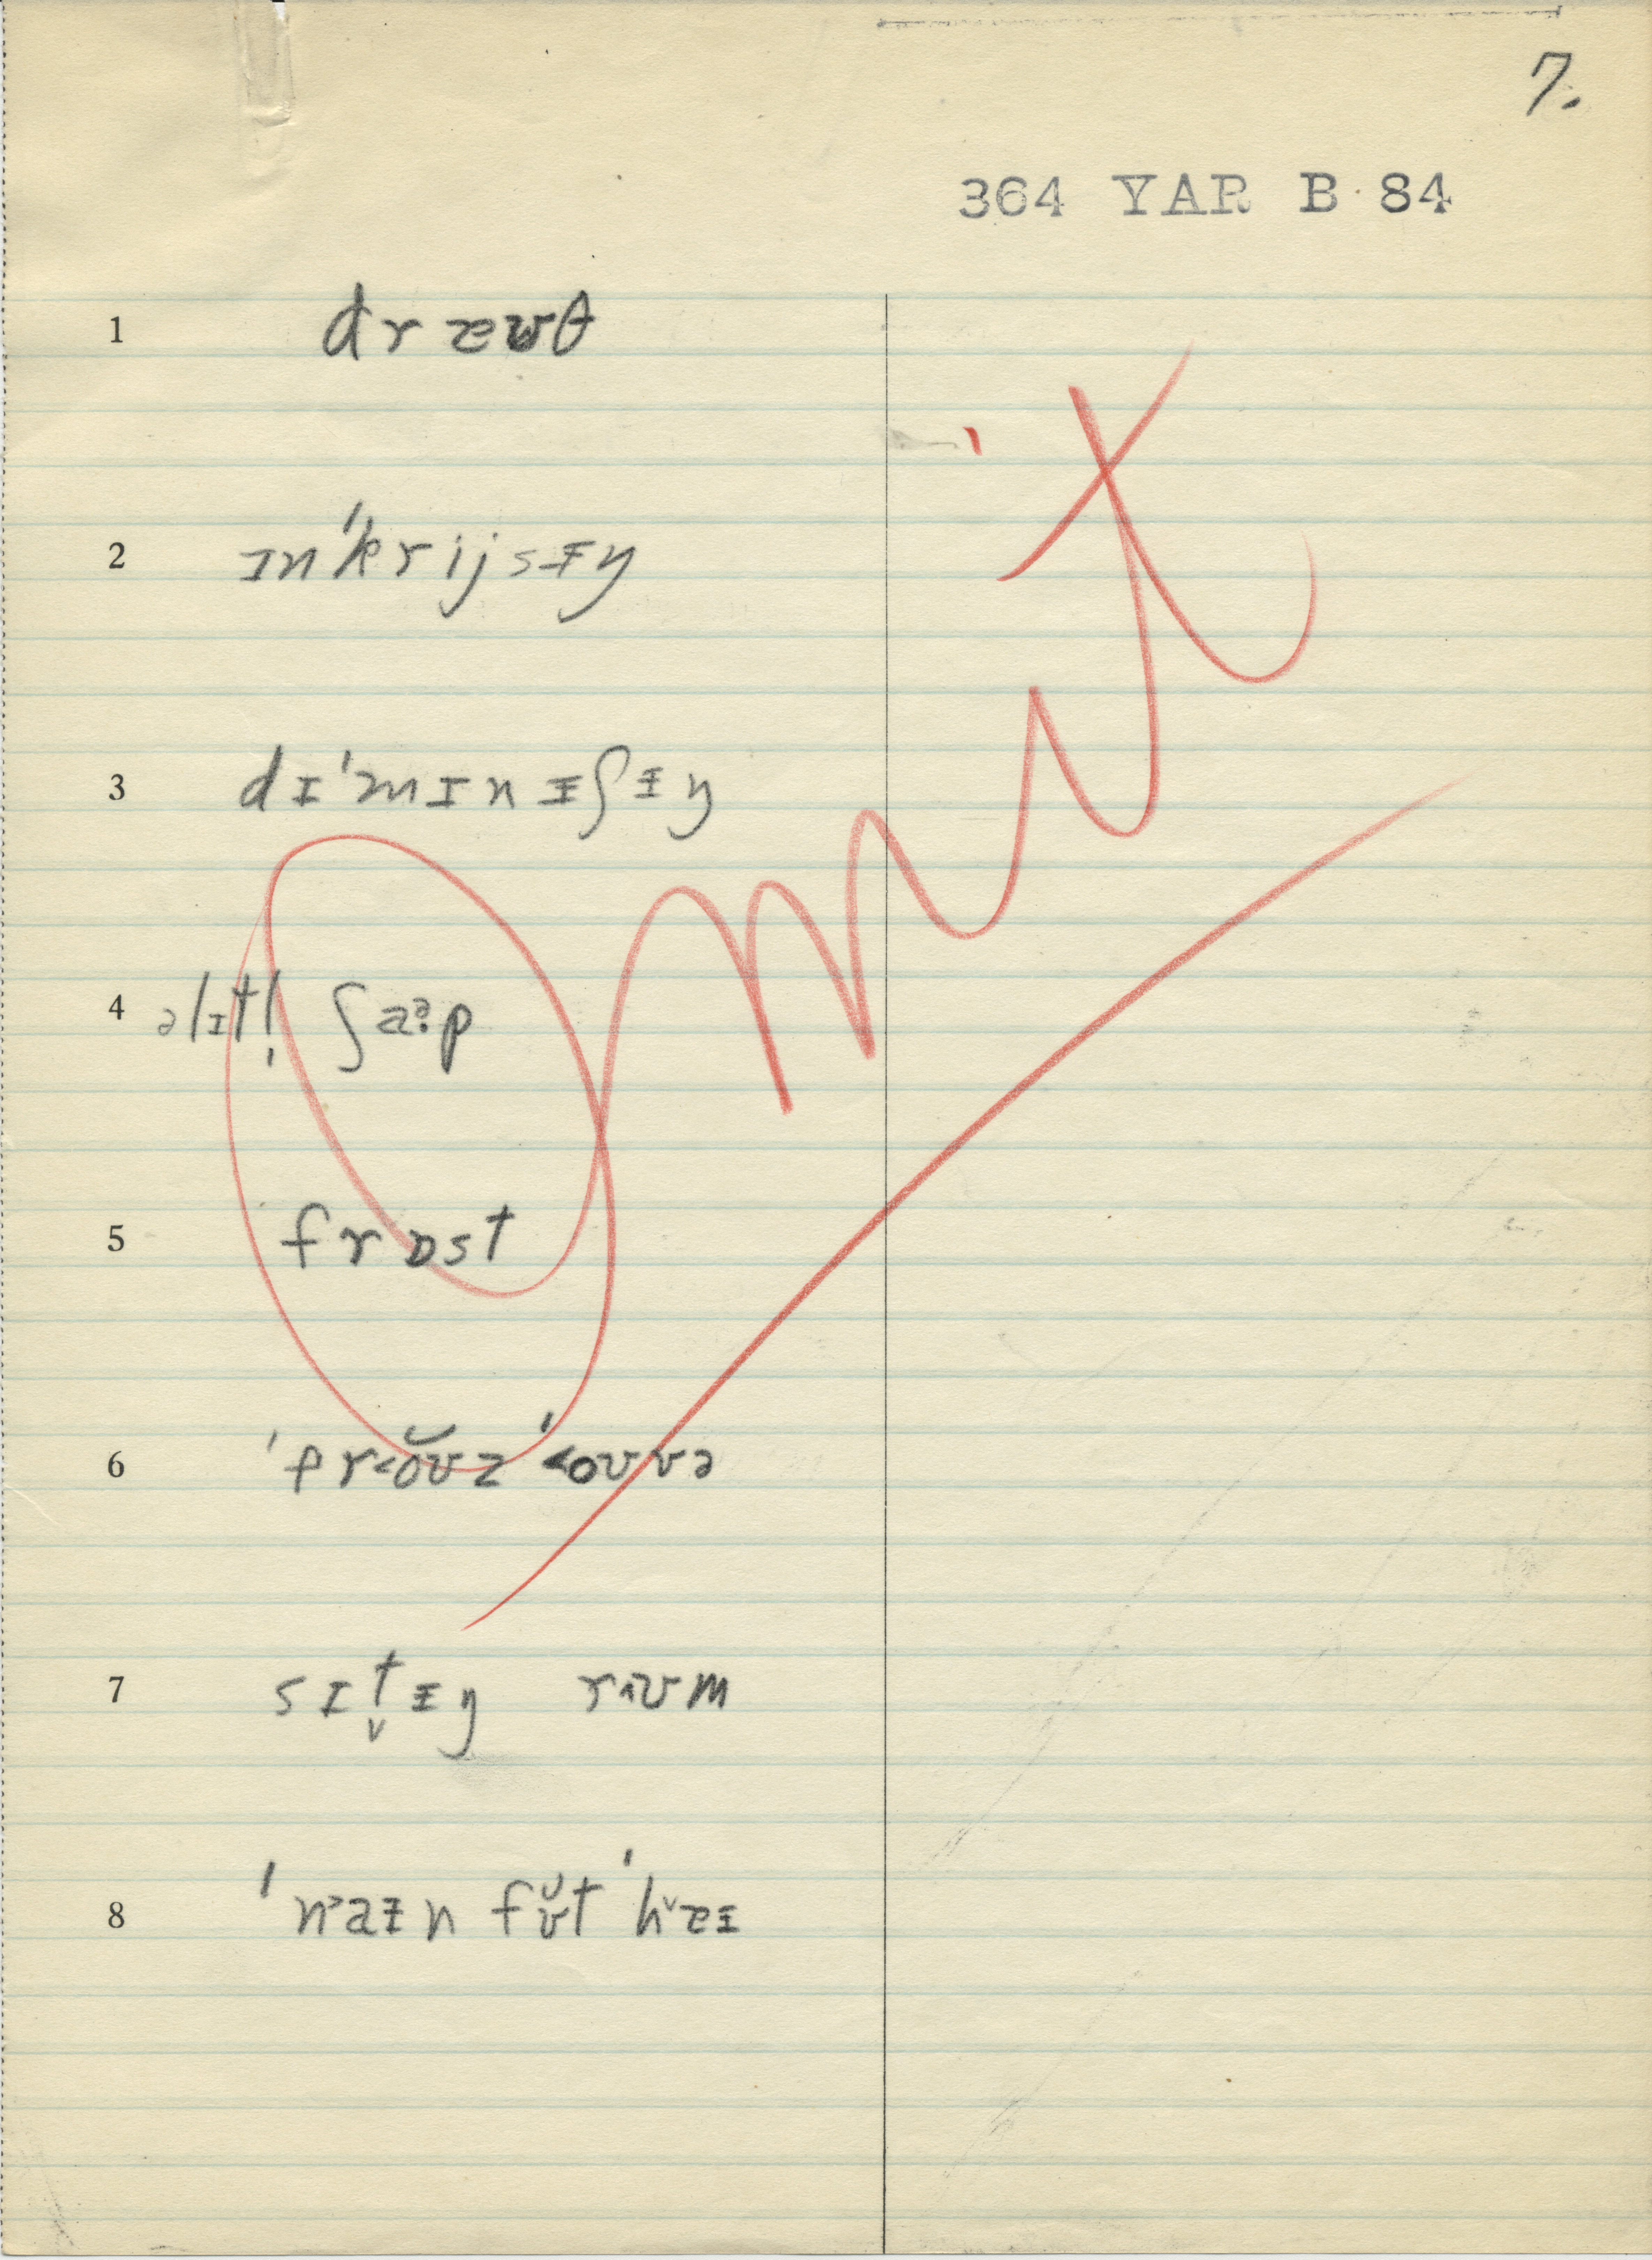 7.
364 YAR B 84
1 dræʊθ
2 ɪn'krijsᵻŋ
3 dɪ'mɪnᵻʃᵻŋ
4 əlɪtl̩ ʃaᵊ·p
5 frɒst
6 'pr˂ŏʊz '˂oʊvə
7 sɪt̬ᵻŋ r˄ʊm
8 'n˃aᵻn fʊ̆t 'h˅æᵻ
Omit